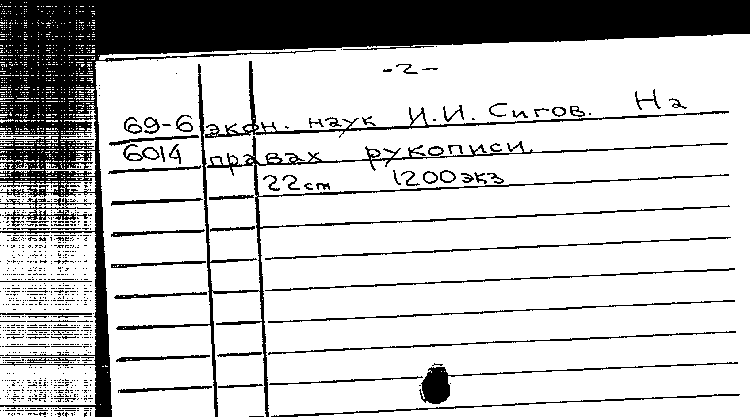 -2-
69-6 экон. наук И.И. Сигов. На
6014 правах рукописи.
22см 1200экз